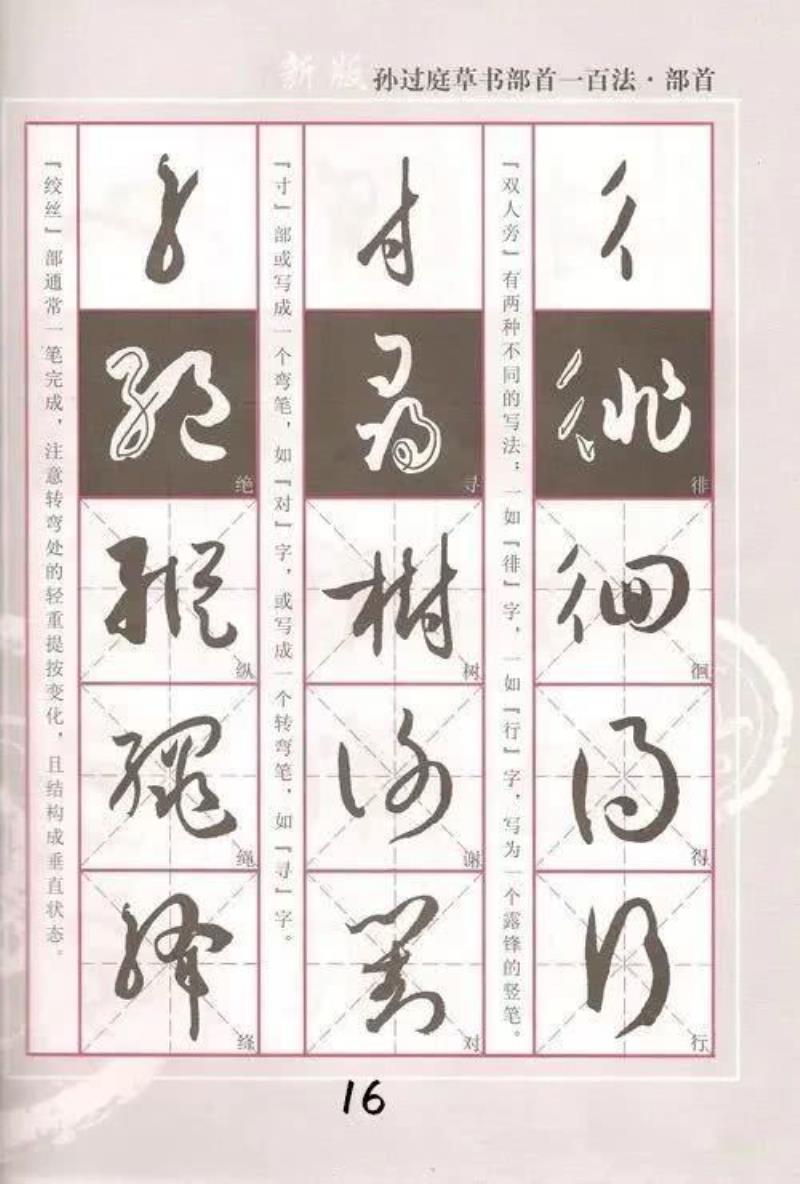 新版 孙过庭草书部首一百法·部首
『双人旁』有两种不同的写法；一如『徘』字，一如『行』字，写为一个露锋的竖笔。
彳
徘
徊
得
行
『寸』部或写成一个弯笔，如『对』字，或写成一个转弯笔，如『寻』字。
寸
寻
树
谢
对
『绞丝』部通常一笔完成，注意转弯处的轻重提按变化，且结构成垂直状态。
纟
绝
纵
绳
绛
16